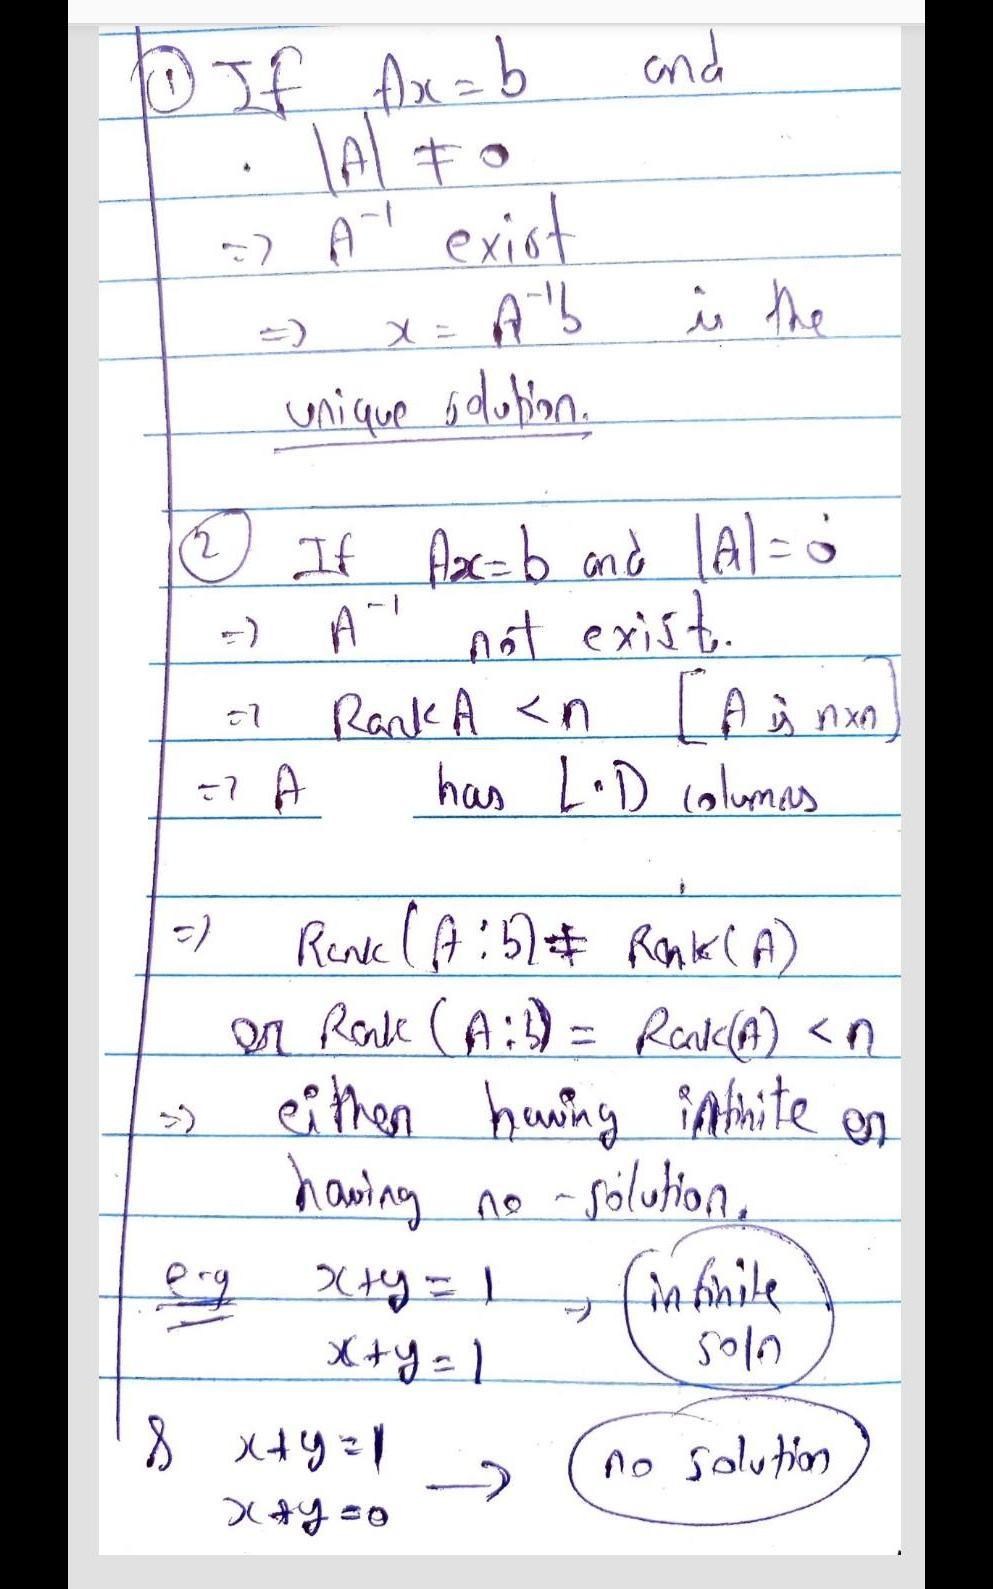 ① If Ax = b and
|A| ≠ 0
=> A⁻¹ exist
=> x = A⁻¹b is the
unique solution.
② If Ax=b and |A|=0
=> A⁻¹ not exist.
=> Rank A < n [A is nxn]
=> A has L.D columns
=> Rank(A:b) ≠ Rank(A)
or Rank (A:b) = Rank(A) < n
=> either having infinite or
having no-solution.
e.g x+y = 1 => infinite
x+y=1 soln
& x+y=1 → no solution
x+y=0